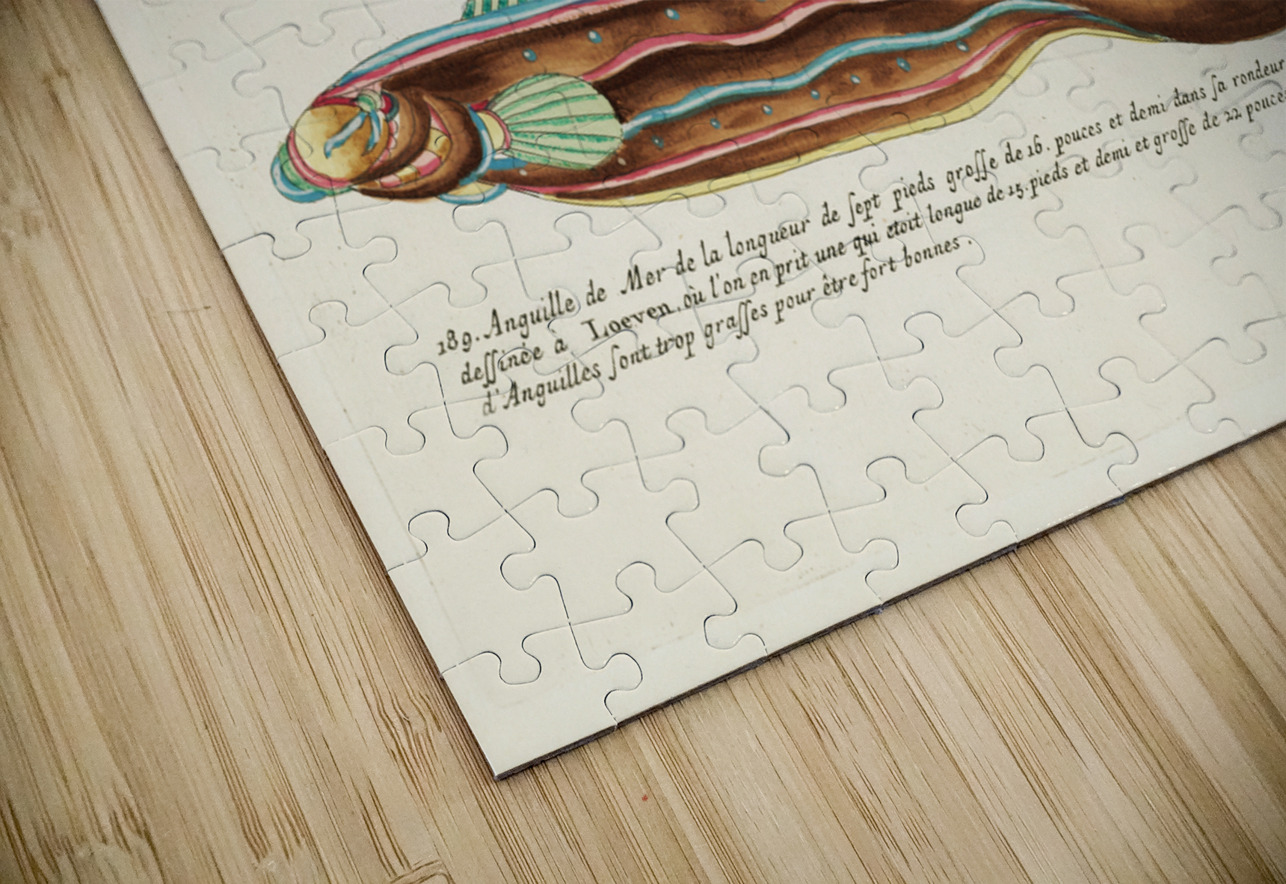 189. Anguille de Mer de la longueur de ſept pieds groſſe de 16. pouces et demi dans ſa rondeur
deſſinée à Loeven. où l'on en prit une qui étoit longue de 15. pieds et demi et groſſe de 22 pouces
d'Anguilles ſont trop graſſes pour être fort bonnes.